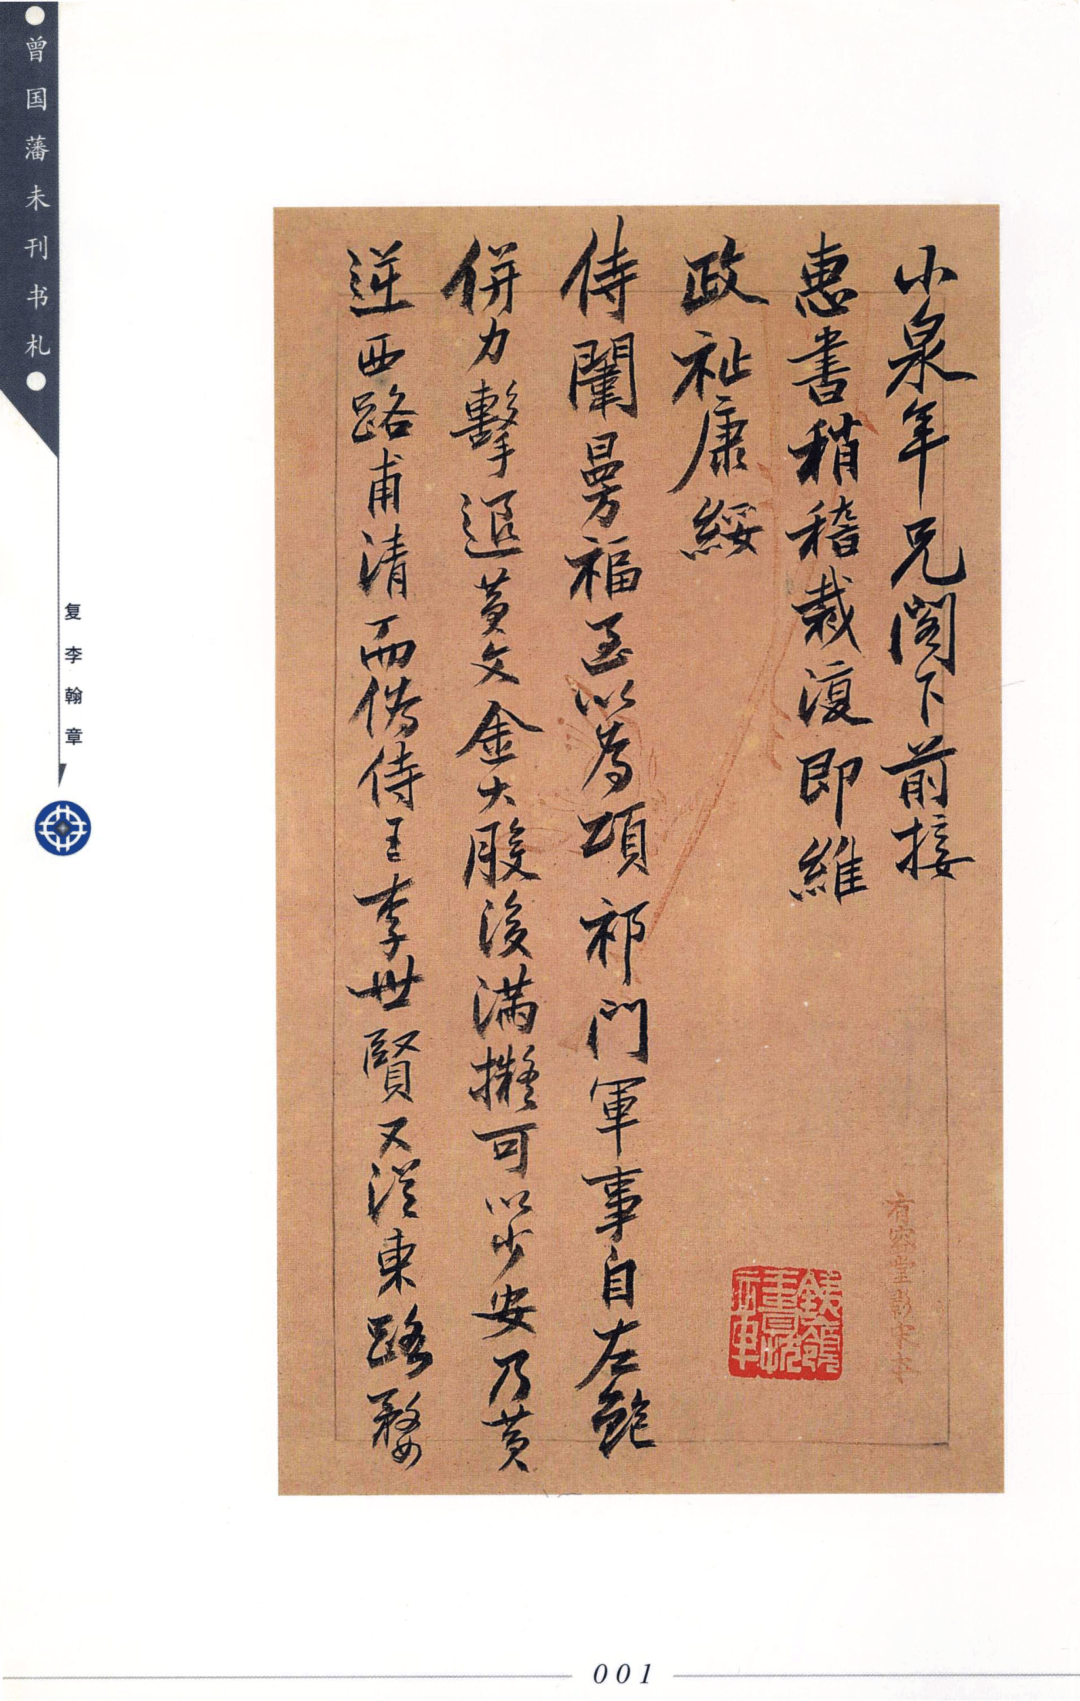 曾国藩未刊书札
复李翰章
小泉年兄阁下前接
惠書稍稽裁復即維
政祉康綏
侍闈曼福至以為頌祁門軍事自左鮑
併力擊退黃文金大股後滿擬可以少安乃黃
逆西路甫清而偽侍王李世賢又從東路婺
有容堂影宋本
001